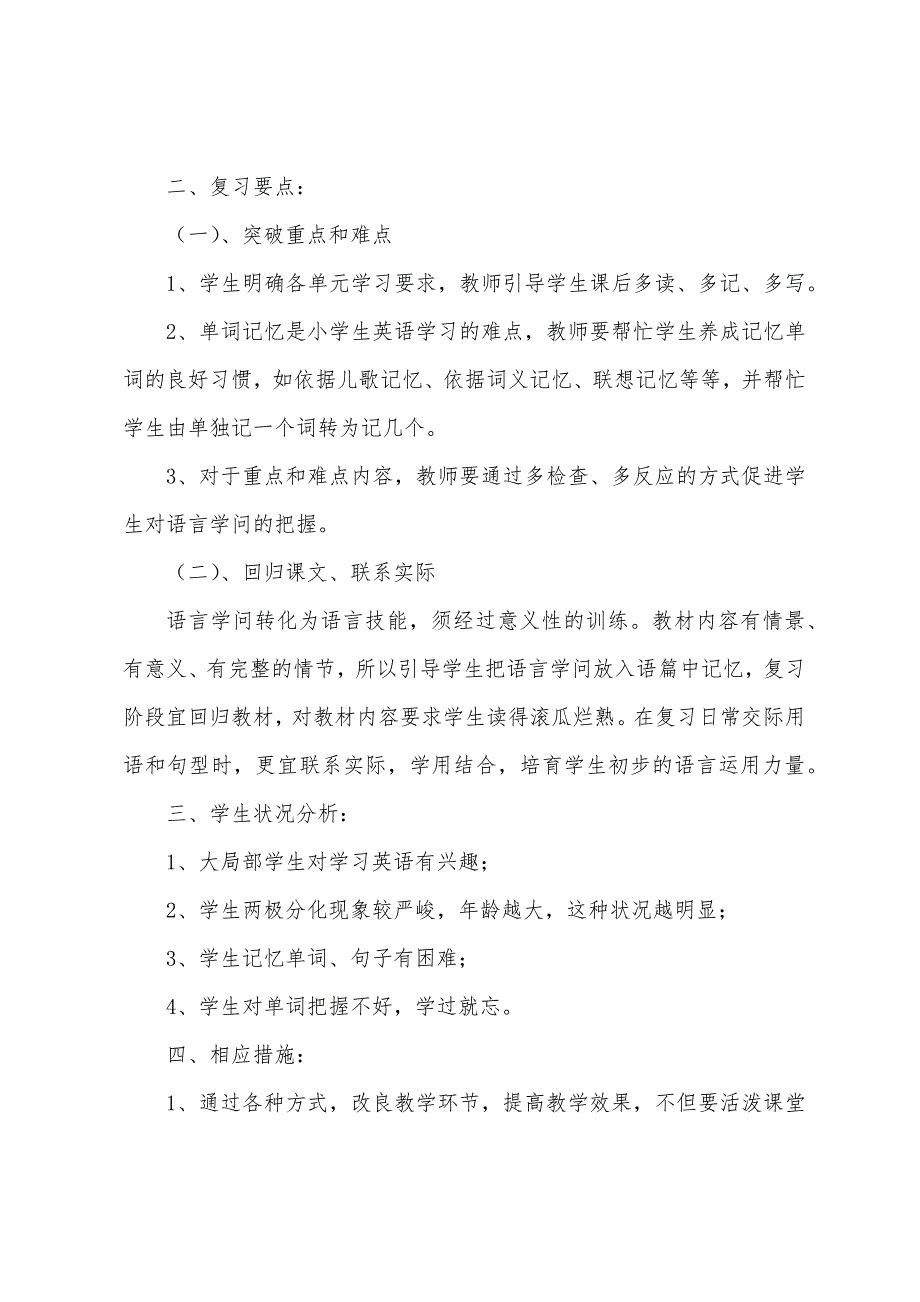 二、复习要点：
（一）、突破重点和难点
1、学生明确各单元学习要求，教师引导学生课后多读、多记、多写。
2、单词记忆是小学生英语学习的难点，教师要帮忙学生养成记忆单
词的良好习惯，如依据儿歌记忆、依据词义记忆、联想记忆等等，并帮忙
学生由单独记一个词转为记几个。
3、对于重点和难点内容，教师要通过多检查、多反应的方式促进学
生对语言学问的把握。
（二）、回归课文、联系实际
语言学问转化为语言技能，须经过意义性的训练。教材内容有情景、
有意义、有完整的情节，所以引导学生把语言学问放入语篇中记忆，复习
阶段宜回归教材，对教材内容要求学生读得滚瓜烂熟。在复习日常交际用
语和句型时，更宜联系实际，学用结合，培育学生初步的语言运用力量。
三、学生状况分析：
1、大局部学生对学习英语有兴趣；
2、学生两极分化现象较严峻，年龄越大，这种状况越明显；
3、学生记忆单词、句子有困难；
4、学生对单词把握不好，学过就忘。
四、相应措施：
1、通过各种方式，改良教学环节，提高教学效果，不但要活泼课堂